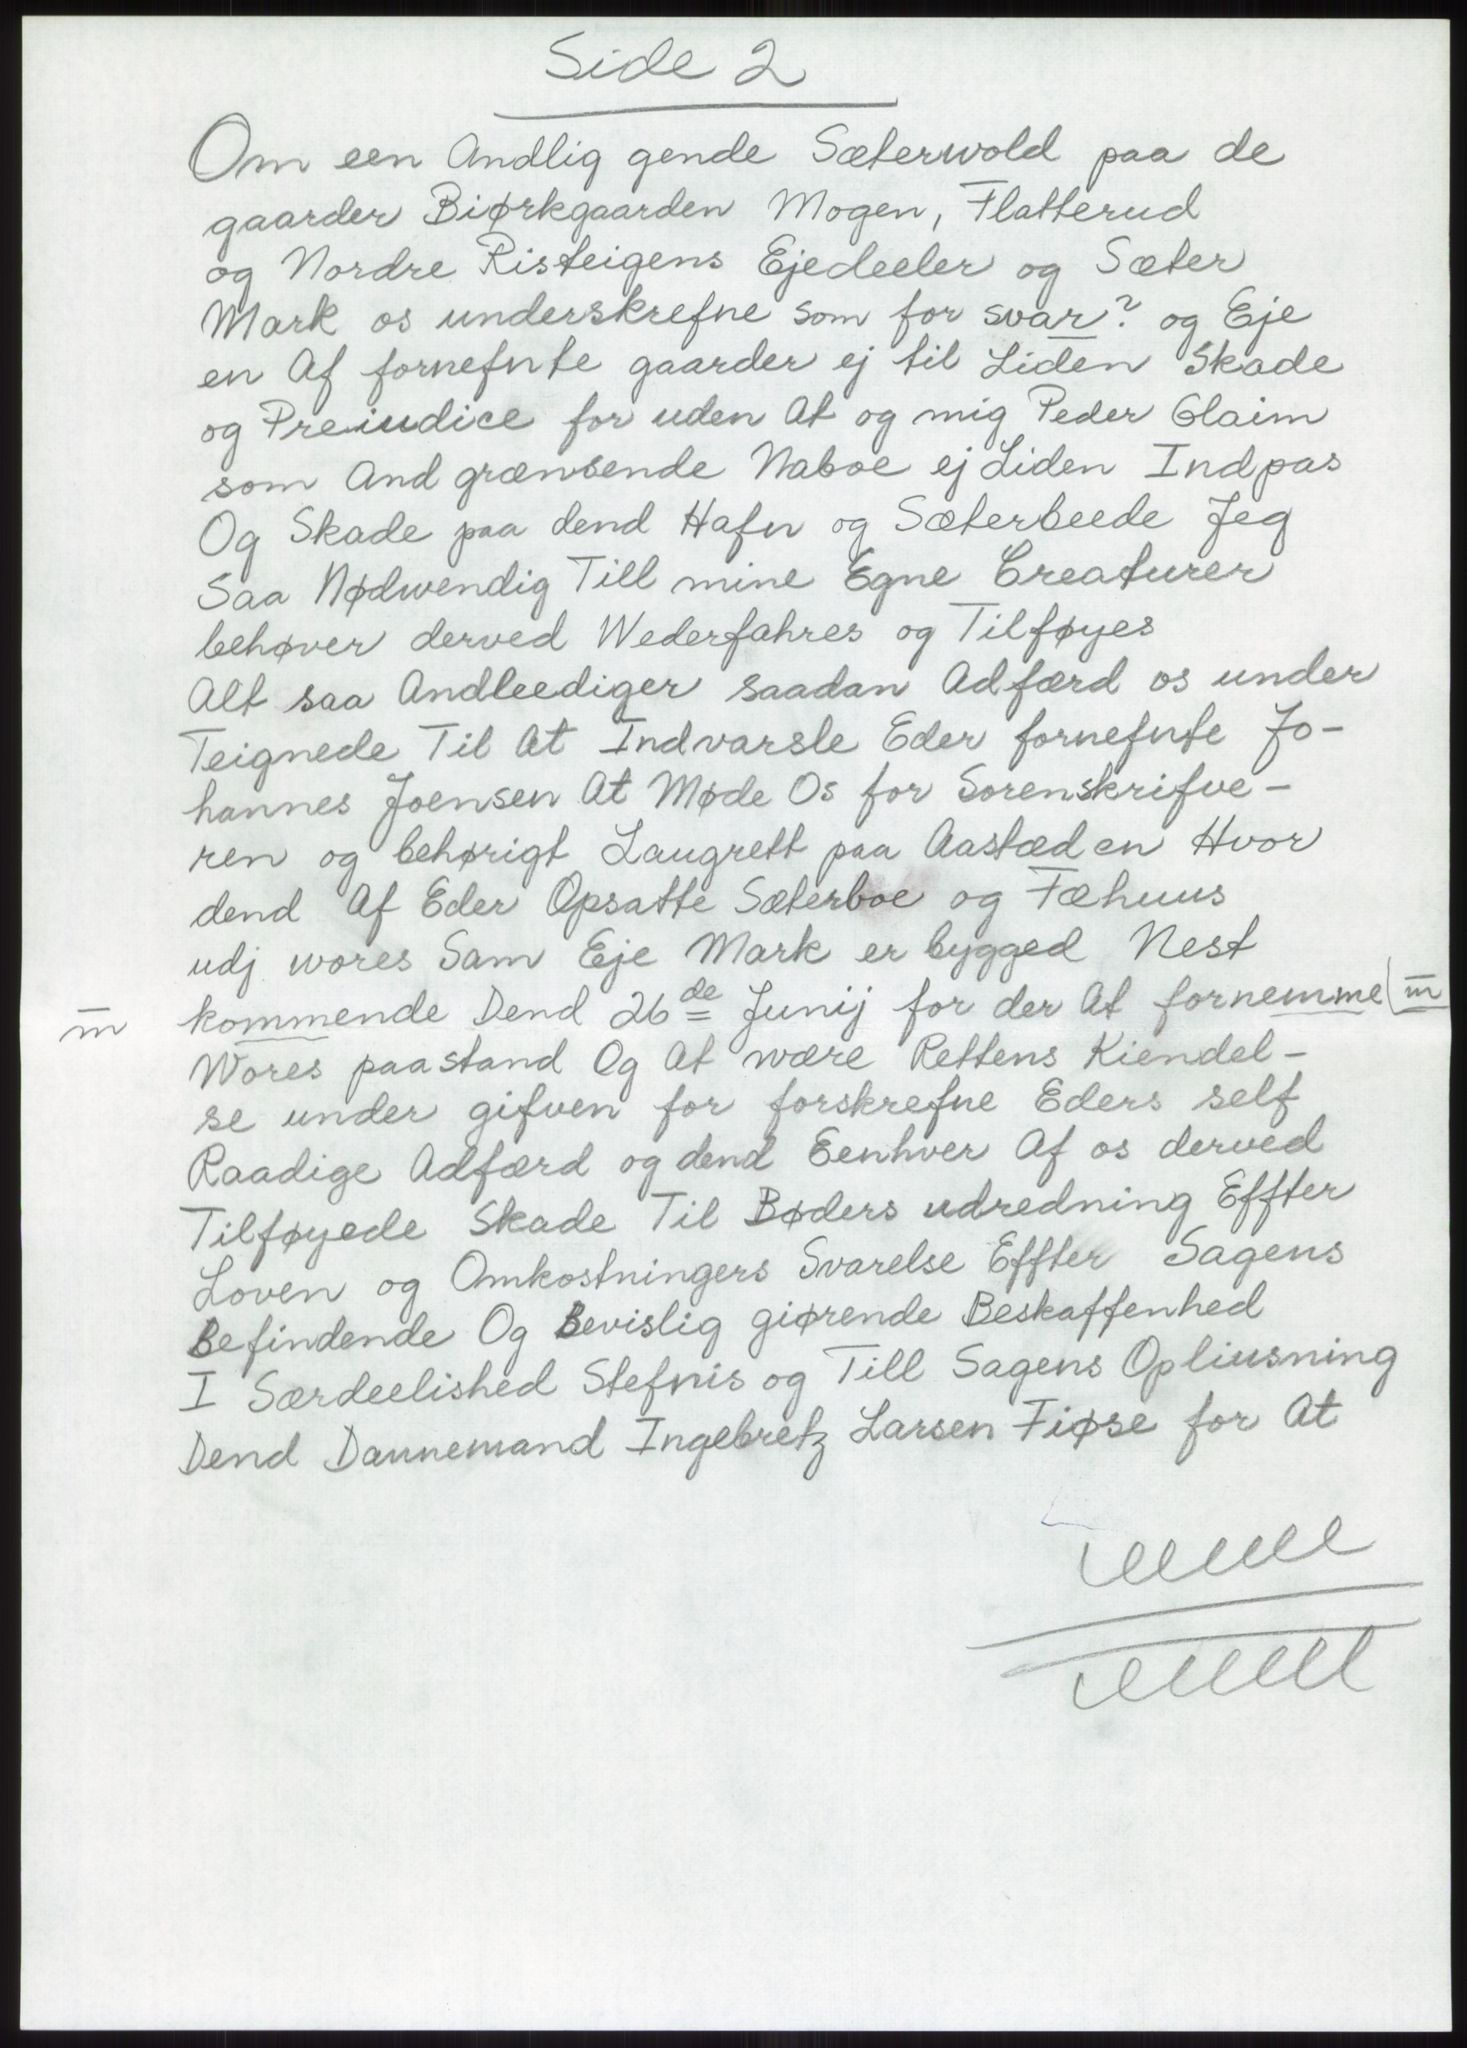 Side 2
Om een Andlig gende Sæterwold paa de
gaarder Biørkgaarden Mogen, Flatterud
og Nordre Risteigens Ejedeeler og Sæter
Mark os underskrefne som for svar? og Eje
en Af fornefnte gaarder ej til Liden Skade
og Preiudice for uden At og mig Peder Glaim
som And grænsende Naboe ej Liden Indpas
Og Skade paa dend Hafn og Sæterbeede Jeg
Saa Nødwendig Till mine Egne Creaturer
behøver derved Wederfahres og Tilføyes
Alt saa Andleediger saadan Adfærd os under
Teignede Til At Indvarsle Eder fornefnte Jo-
hannes Joensen At Møde Os for Sorenskrifve-
ren og behørigt Laugrett paa Aastæden Hvor
dend Af Eder Opsatte Sæterboe og Fæhuus
udj wores Sam Eje Mark er bygged Nest
m kommende Dend 26de Junij for der At fornemme m
Wores paastand Og At wære Rettens Kiendel-
se under gifven for forskrefne Eders self
Raadige Adfærd og dend Eenhver Af os derved
Tilføyede Skade Til Bøders udredning Effter
Loven og Omkostningers Svarelse Effter Sagens
Befindende Og Bevislig giørende Beskaffenhed
I Særdeelished Stefnis og Till Sagens Opliusning
Dend Dannemand Ingebretz Larsen Fiøse for At